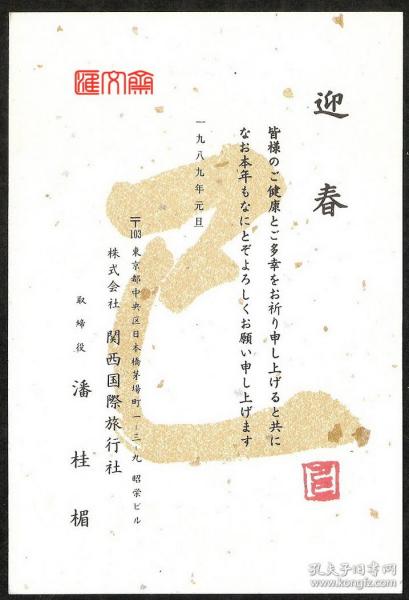 迎春
皆様のご健康とご多幸をお祈り申し上げると共に
なお本年もなにとぞよろしくお願い申し上げます
一九八九年元旦
〒103 東京都中央区日本橋茅場町一-三-九 昭栄ビル
株式会社 関西国際旅行社
取締役 潘桂楣
匯文齋
巳
孔夫子旧书网
www.kongfz.com